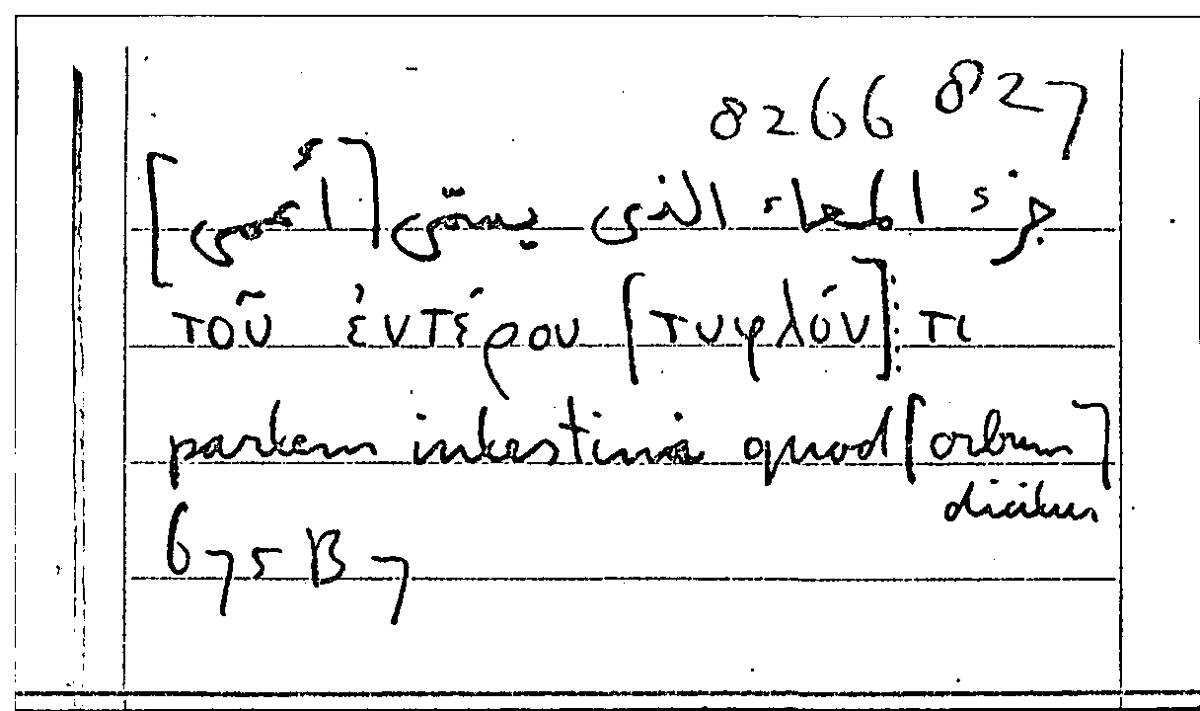 8266 827
جزء المعاء الذى يسمّى [أعمى]
τοῦ ἐντέρου [τυφλόν] : τι
partem intestini quod [orbum]
dicitur
675 B 7